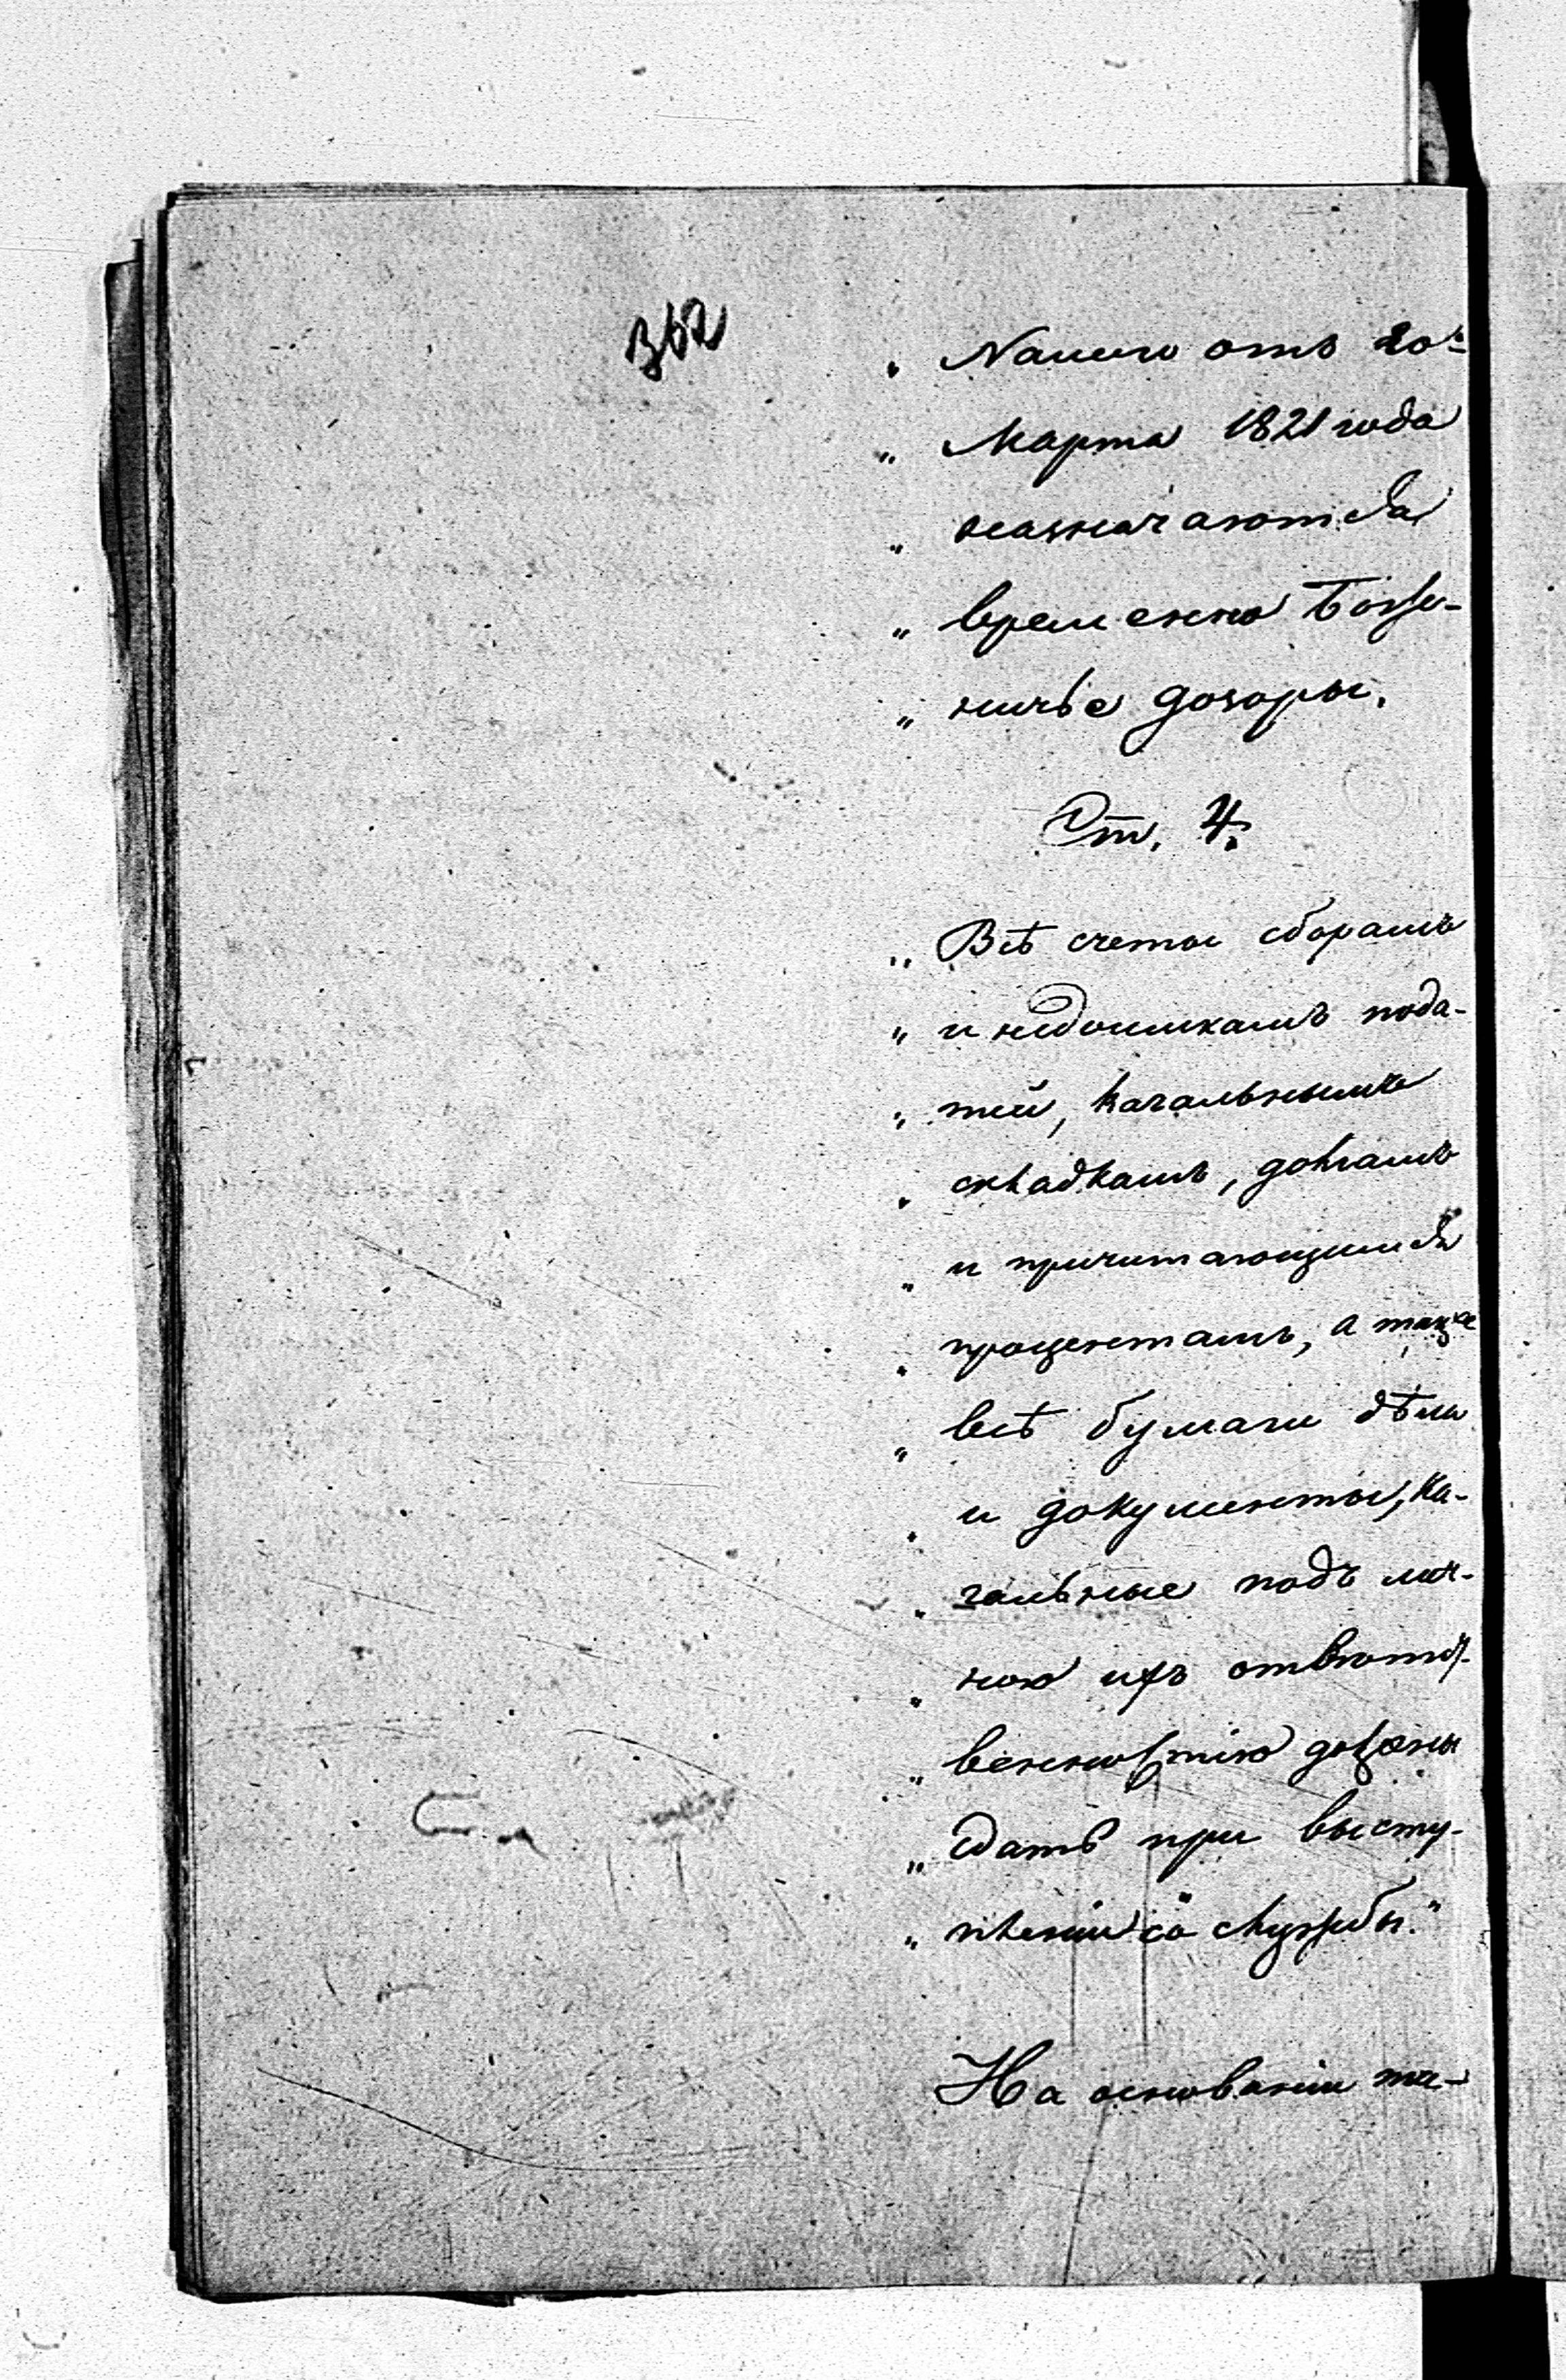 362
„ Нашего отъ 20го
„ Марта 1821 года
„ назначаются
„ временно Боже-
„ ничье дозоры.
Ст. 4.
„ Всѣ счеты сборамъ
„ и недоимкамъ пода-
„ тей, кагальнымъ
„ складкамъ, долгамъ
„ и причитающимся
„ процентамъ, а также
„ всѣ бумаги дѣла
„ и документы, ка-
„ гальные подъ лич-
„ ною ихъ ответст-
„ венностію должны
„ сдать при высту-
„ пленіи со службы."
На основаніи та-